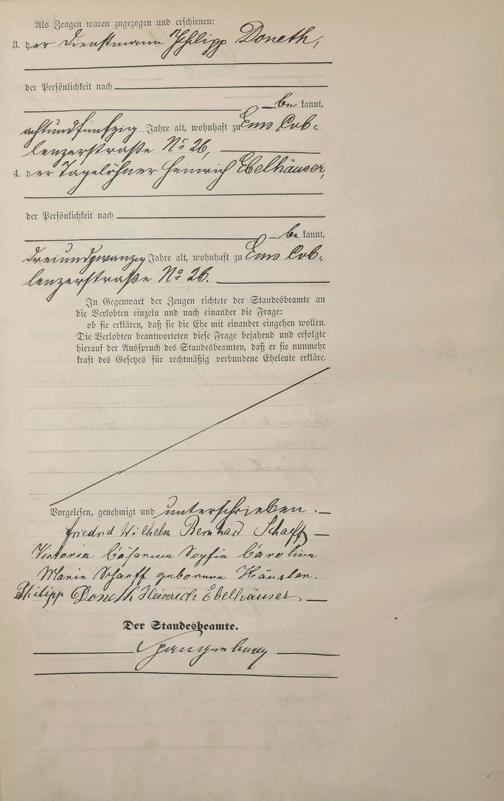 Als Zeugen waren zugezogen und erschienen:
3. der Dienstmann Philipp Doneth,
der Persönlichkeit nach
be kannt,
achtundfünfzig Jahre alt, wohnhaft zu Ems Cob-
lenzerstraße No 26,
4. der Tagelöhner Heinrich Ebelhäuser,
der Persönlichkeit nach
be kannt,
dreiundzwanzig Jahre alt, wohnhaft zu Ems Cob-
lenzerstraße No 26.
In Gegenwart der Zeugen richtete der Standesbeamte an
die Verlobten einzeln und nach einander die Frage:
ob sie erklären, daß sie die Ehe mit einander eingehen wollen.
Die Verlobten beantworteten diese Frage bejahend und erfolgte
hierauf der Ausspruch des Standesbeamten, daß er sie nunmehr
kraft des Gesetzes für rechtmäßig verbundene Eheleute erkläre.
Vorgelesen, genehmigt und unterschrieben.
Friedrich Wilhelm Bernhard Scharff
Victoria Catharina Sophia Carolina
Maria Scharff geborene
Philipp Doneth Heinrich Ebelhäuser
Der Standesbeamte.